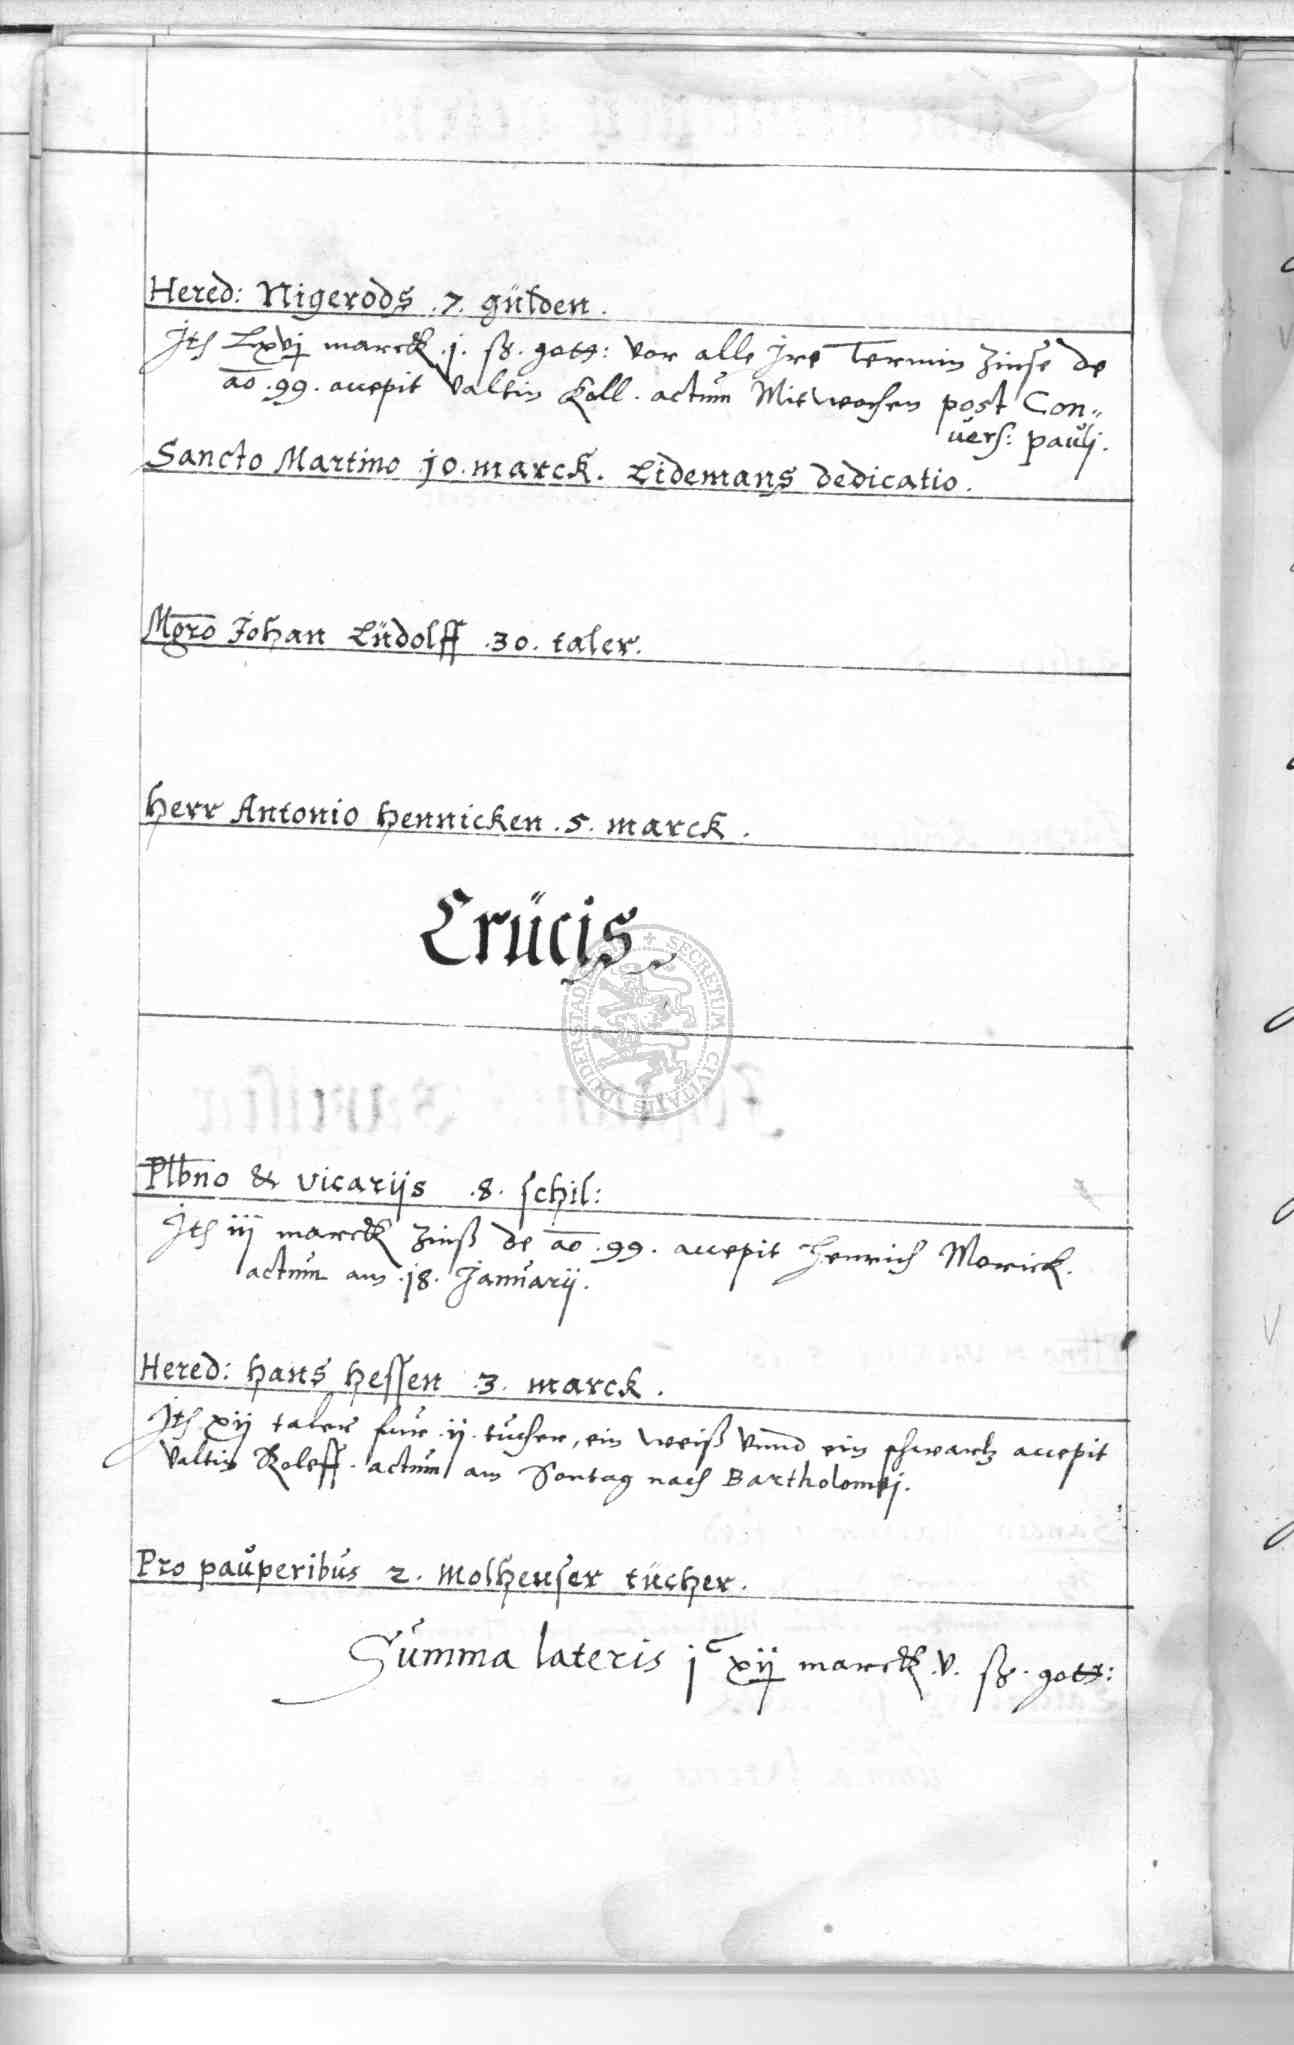 Hered: Nigerods .7. gülden.
Jts Lxvj marck .j. ß. gott: vor alle Jre Termin Zinse de
ao .99. accepit Valtin Koll. actum Mitwochen post Con„
vers: paulj.
Sancto Martino 10. marck. Lidemans dedicatio.
Mgro Johan Lüdolff .30. taler.
Herr Antonio Hennicken .5. marck.
Crücis
SECRETUM CIVITATIS DUDERSTADENSIS
Plbno & vicariis .8. schil:
Jts iij marck Zinß de ao .99. accepit Henrich Morick.
actum am .18. Januarij.
Hered: Hans Hessen .3. marck.
Jts xij taler fur .ij. tucher, ein weiß vnnd ein schwartz accepit
Valtin Roleff. actum am Sontag nach Bartholomej.
Pro pauperibus 2. Molhenser tücher.
Summa lateris jc xij marck .v. ß. gott: